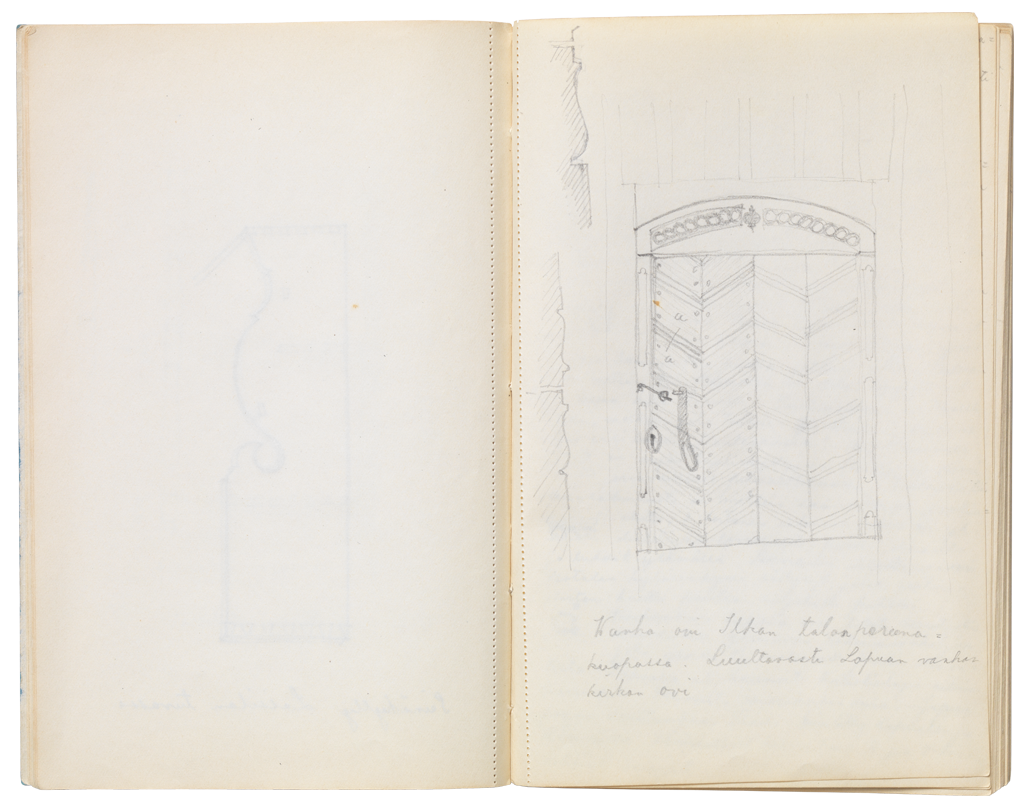 a
a
Vanha ovi Ilkan talonperuna=
kuopassa. Luultavasti Lapuan vanhan
kirkon ovi